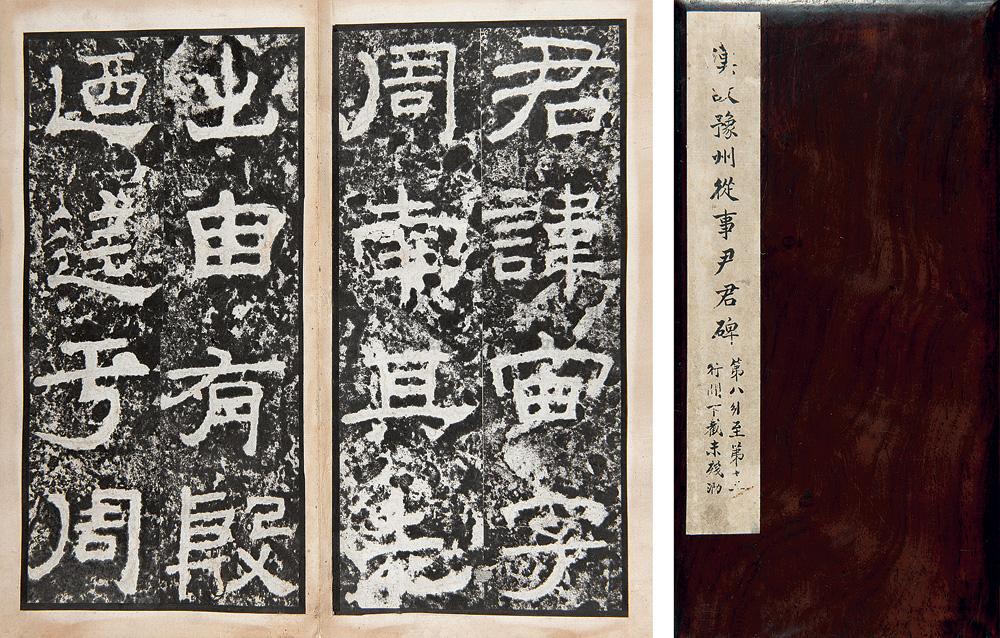 君諱宙字
周南其先
出自有殷
迺于周
漢故豫州從事尹君碑
第八列至第十
行間下截未殘泐